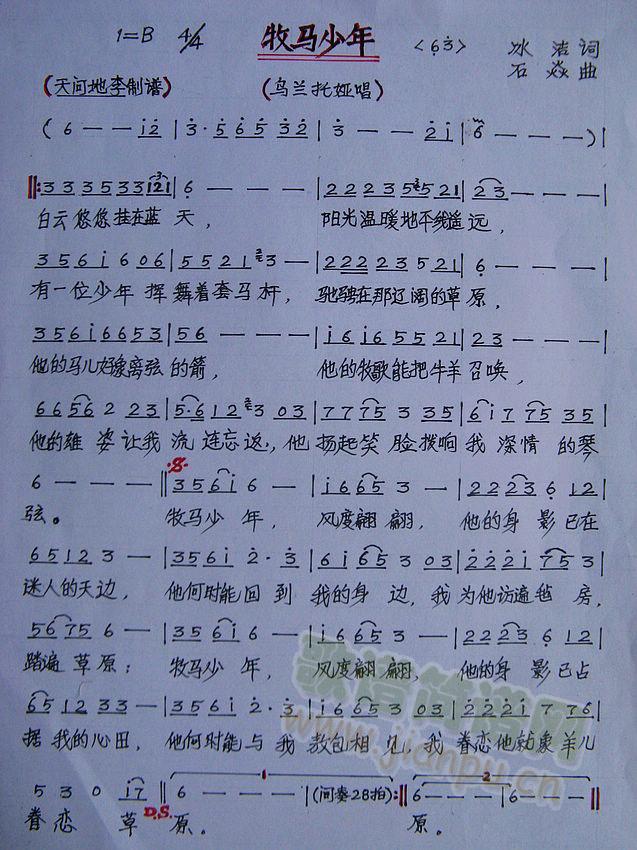 1=B 4/4 牧马少年 <6 3> 冰洁词
石焱曲
(天问地李制谱) (乌兰托娅唱)
(6 — — i2 | 3·5 6 5 32 | 3 — — 2i | 6 — — —)|
||:3 3 3 5 3 3 121 | 6 — — — | 2 2 2 3 5 5 21 | 2 3 — — — |
白云悠悠挂在蓝天, 阳光温暖地平线遥远,
3 5 6 i 6 0 6 | 5 5 2 1 3 — | 2 2 2 2 3 5 2 1 | 6 — — — |
有一位少年挥舞着套马杆, 驰骋在那辽阔的草原,
3 5 6 i 6 6 5 3 | 5 6 — — — | i 6 i 6 5 5 2 1 | 2 3 — — — |
他的马儿好象离弦的箭, 他的牧歌能把牛羊召唤,
6 6 5 6 2 2 3 | 5·6 1 2 3 0 3 | 7 7 7 5 3 3 5 | 6 i 7 7 5 3 5 |
他的雄姿让我流连忘返,他扬起笑脸拨响我深情的琴
6 — — — || 3 5 6 i 6 — | i 6 6 5 3 — | 2 2 2 3 6 1 2 |
弦。 牧马少年, 风度翩翩, 他的身影已在
6 5 1 2 3 — | 3 5 6 i 2·3 | 6 i 6 5 3 0 3 | 2 2 2 i 7 5 3 |
迷人的天边, 他何时能回到我的身边,我为他访遍毡房,
5 6 7 5 6 — | 3 5 6 i 6 — | i 6 6 5 3 — | 2 2 2 3 6 1 2 |
踏遍草原; 牧马少年, 风度翩翩, 他的身影已占
6 5 1 2 3 3 — | 3 5 6 i 2·3 | i 6 6 5 3 0 3 | 2 2 2 i 7 7 6 |
据我的心田, 他何时能与我敖包相见,我眷恋他就象羊儿
5 3 0 i 7 | 6 — — — | — — —(间奏28拍):|| 6 — — — | 6 — — — ||
眷恋草D.S.原。 原。
歌谱简谱网
www.jianpu.cn